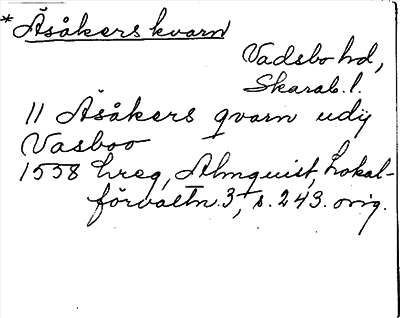 *Åsåkers kvarn
Vadsbo hd,
Skarab. l.
11 Åsåkers qvarn udij
Vasboo
1558 hreg, Almquist, Lokal-
förvaltn. 3, s. 243. orig.